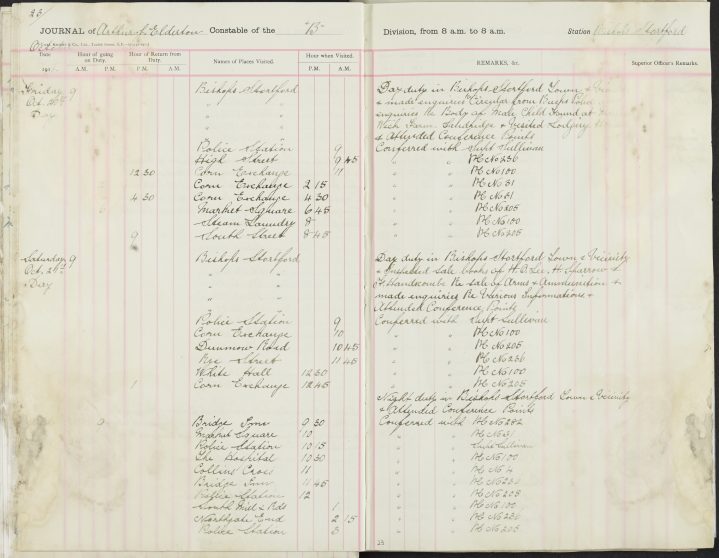 23
JOURNAL of Arthur J. Elderton Constable of the "B" Division, from 8 a.m. to 8 a.m. Station Bishops Stortford
Oct
Date Hour of going on Duty. Hour of Return from Duty. Names of Places Visited. Hour when Visited. REMARKS, &c. Superior Officer's Remarks.
191 A.M. P.M. A.M. P.M. P.M. A.M.
Friday 9 Bishops Stortford Day duty in Bishops Stortford Town &
Oct. " " & made enquiries Circular from Police
Day " " enquiries Re Body of Male Child Found at
" " Wick Farm, & Visited Lodging
" " & Attended Conference Points
Police Station 9 Conferred with Supt Sullivan
High Street 9 45 " " PC No 236
12 30 Corn Exchange 11 " " PC No 100
Corn Exchange 2 15 " " PC No 31
4 30 Corn Exchange 4 30 " " PC No 31
Market Square 6 45 " " PC No 205
Steam Laundry 8 " " PC No 100
9 South Street 8 45 " " PC No 205
Saturday 9 Bishops Stortford Day duty in Bishops Stortford Town & Vicinity
Oct. " " & inspected Sale Books of H. O. Lee, H. Sparrow &
Day " " Handscombe Re sale of Arms & Ammunition &
" " made enquiries Re Various Informations &
" " Attended Conference Points
Police Station 9 Conferred with Supt Sullivan
Corn Exchange 10 " " PC No 100
Dunmow Road 10 45 " " PC No 205
Rye Street 11 45 " " PC No 236
White Hall 12 30 " " PC No 100
1 Corn Exchange 12 45 " " PC No 205
Night duty in Bishops Stortford Town & Vicinity
& Attended Conference Points
9 Bridge Inn 9 30 Conferred with PC No 282
Market Square 10 " " PC No 31
Police Station 10 15 " " Supt Sullivan
The Hospital 10 30 " " PC No 100
Collins Cross 11 " " PC No 4
Bridge Inn 11 45 " " PC No 236
Police Station 12 " " PC No 205
South Mill Rd 1 " " PC No 100
Northgate End 2 15 " " PC No 236
Police Station 3 " " PC No 205
23